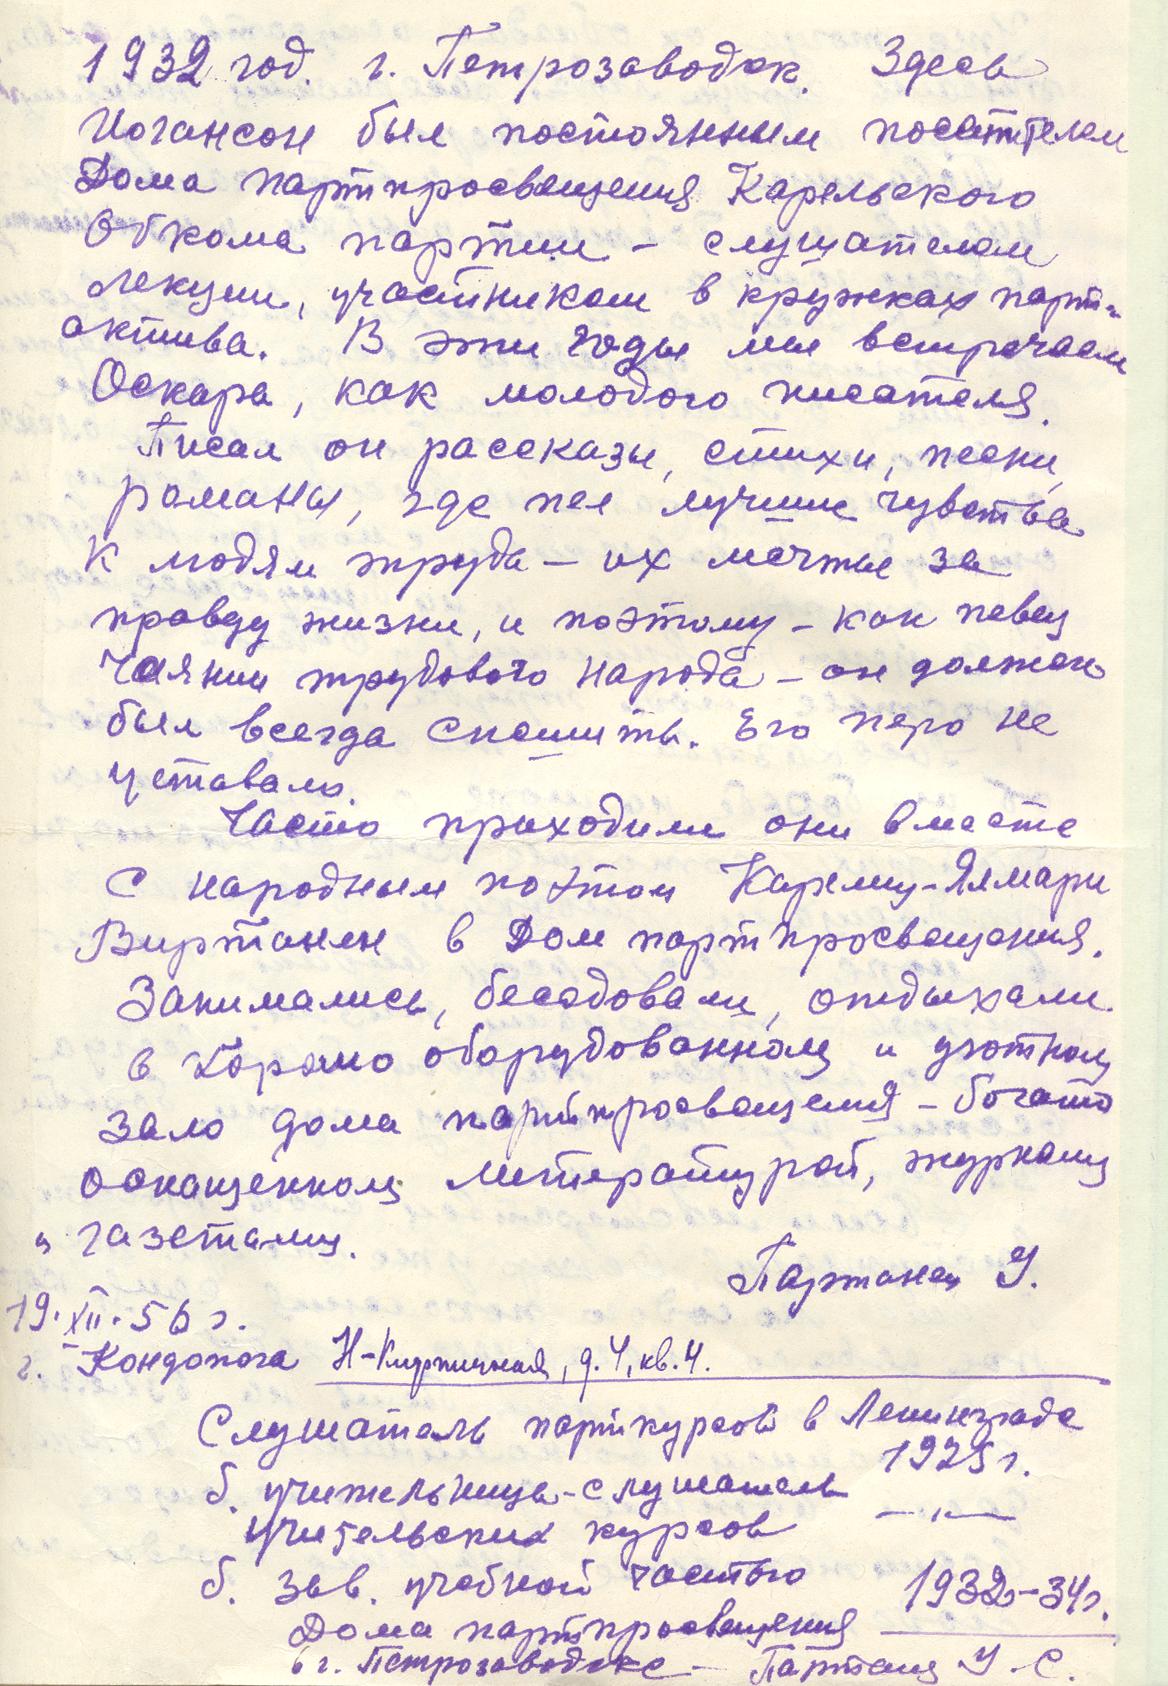 1932 год. г. Петрозаводск. Здесь
Иогансон был постоянным посетителем
Дома партпросвещения Карельского
Обкома партии – слушателем
лекции, участником в кружках парт-
актива. В эти годы мы встречаем
Оскара, как молодого писателя.
Писал он рассказы, стихи, песни,
романы, где пел лучшие чувства
к людям труда – их мечты за
правду жизни, и поэтому – как певец
чаянии трудового народа – он должен
был всегда спешить. Его перо не
уставало.
Часто приходили они вместе
с народным поэтом Карелии – Ялмари
Виртанен в Дом партпросвещения.
Занимались, беседовали, отдыхали
в хорошо оборудованном и уютном
зале дома партпросвещения – богато
оснащенном литературой, журналами
и газетами.
Партанен У.
19.XII.56 г.
г. Кондопога Н-Кирпичная, д. 4, кв. 4.
Слушатель парткурсов в Ленинграде
1925 г.
б. учительница – слушатель
учительских курсов —"—
б. зав. учебной частью
Дома партпросвещения 1932–34 г.
в г. Петрозаводске – Партанен У. С.